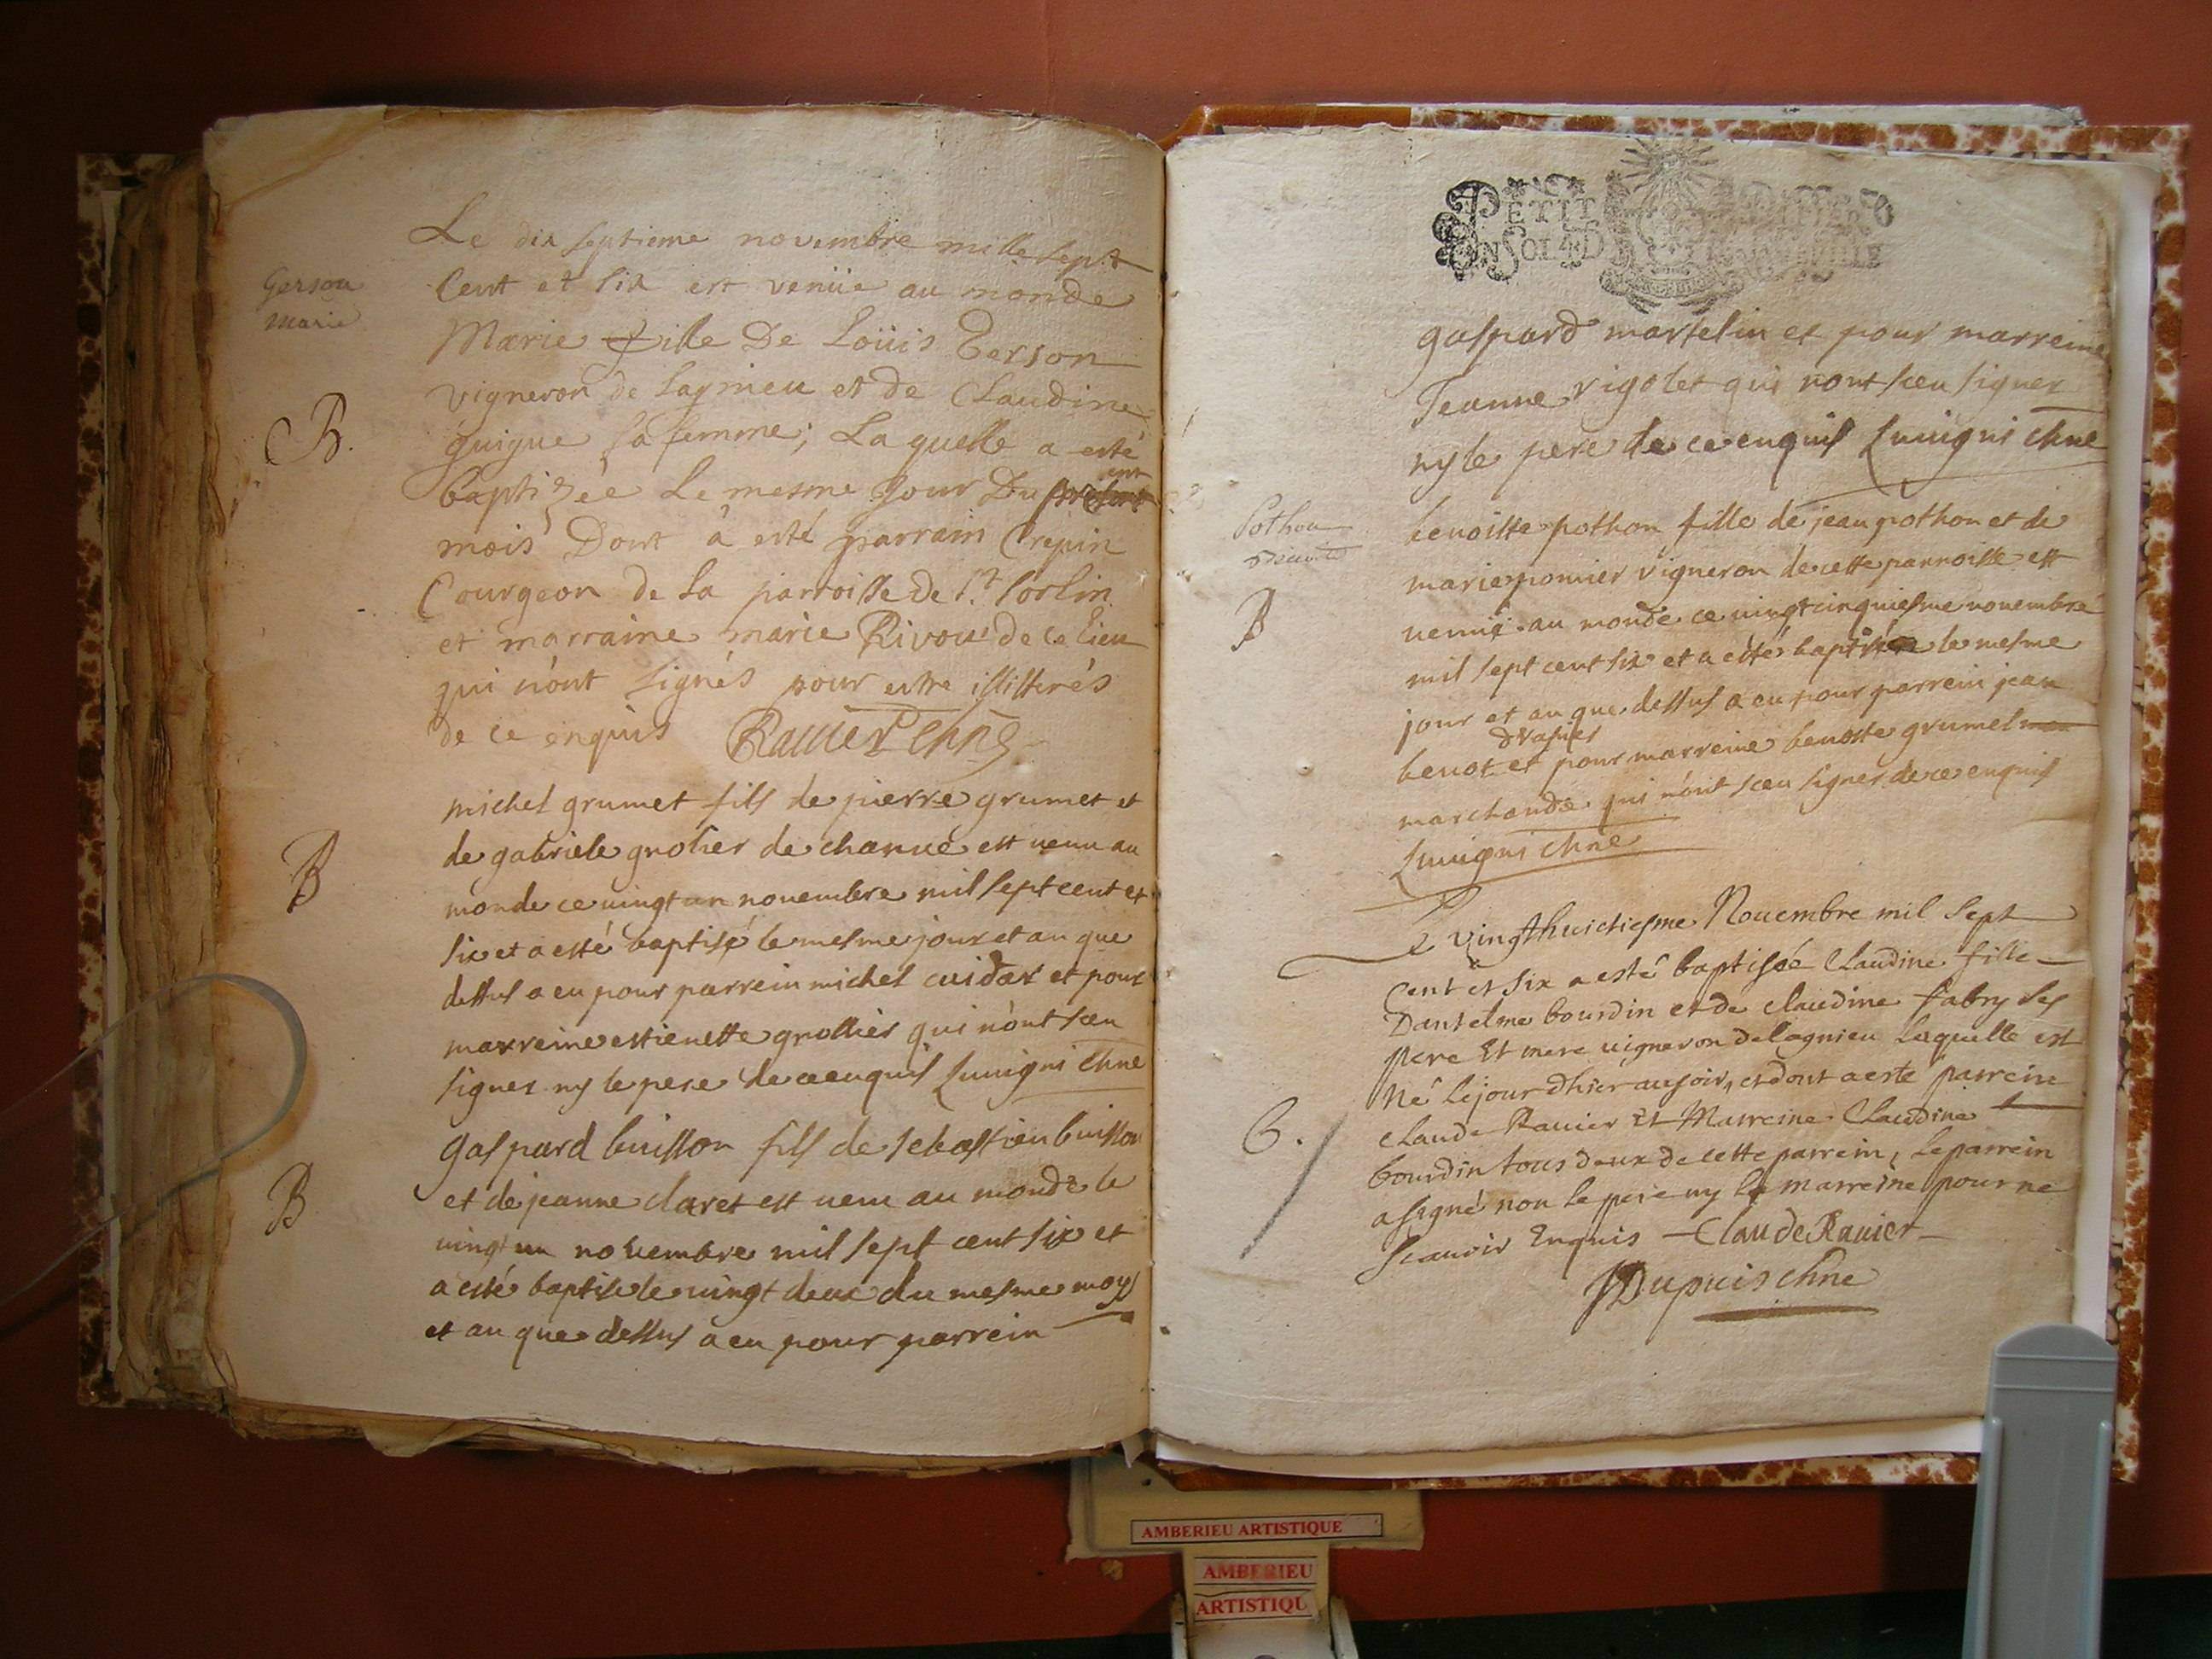 Le dix septieme novembre mille sept
Cent et six est venüe au monde
Gerson
Marie
Marie fille De Loüis Gerson
vigneron de Lagnieu et de Claudine
B.
guigue sa femme; La quelle a esté
baptizée Le mesme Jour Du
mois Dont a esté parrain Crepin
Courgeon de La parroisse de St. Sorlin
et marraine marie Rivou de ce lieu
qui n'ont signés pour estre illitterés
de ce enquis Ravier chne
michel grumet fils de pierre grumet et
de gabriele grolier de charvé est venu au
B
monde ce vingt un nouembre mil sept cent et
six et a esté baptisé le mesme jour et an que
dessus a eu pour parrein michel cuidat et pour
marreine estienette grollier qui n'ont sceu
signer ny le pere de ce enquis Luuigni chne
gaspard buisson fils de sebastien buisson
et de jeanne claret est venu au monde le
B
vingt un novembre mil sept cent six et
a esté baptise le vingt deux du mesme moys
et an que dessus a eu pour parrein
PETIT
EN 4 D
gaspard martelin et pour marreine
Jeanne rigolet qui nont sceu signer
ny le pere de ce enquis Luuigni chne
Pothon
benoitte pothon fille de jean pothon et de
marie ponnier vigneron de cette parroisse est
B
venue au monde ce vingt cinquiesme nouembre
mil sept cent six et a esté baptisée le mesme
jour et an que dessus a eu pour parrein jean
drapier
benot et pour marreine benoite grumel
marchande qui n'ont sceu signer de ce enquis
Luuigni chne
Le vingthuictiesme Nouembre mil Sept
Cent et six a esté baptisée Claudine fille
Dantelme bourdin et de claudine fabry Ses
pere Et mere uigneron de lagnieu Laquelle est
Né le jour d'hier au soir, et dont a esté parrein
B.
claude Rauier Et Marreine Claudine
bourdin tous deux de cette parrein, Le parrein
a signé non le pere ny la marreine pour ne
Scauoir Enquis Claude Rauier
Dupuis chne
AMBERIEU ARTISTIQUE
AMBERIEU
ARTISTIQU